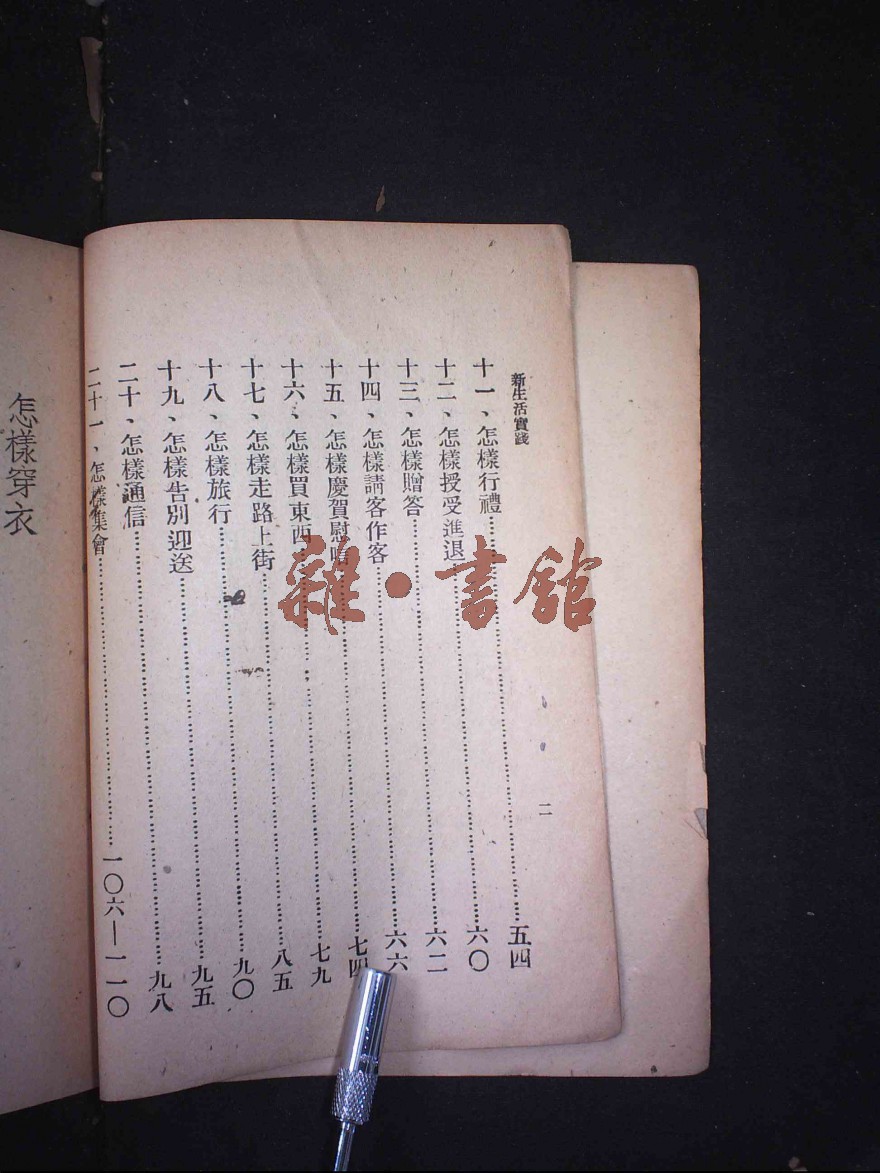 新生活實踐
二
十一、怎樣行禮……五四
十二、怎樣授受進退……六〇
十三、怎樣贈答……六二
十四、怎樣請客作客……六六
十五、怎樣慶賀慰唁……七四
十六、怎樣買東西……七九
十七、怎樣走路上街……八五
十八、怎樣旅行……九〇
十九、怎樣告別迎送……九五
二十、怎樣通信……九八
二十一、怎樣集會……一〇六—一一〇
怎樣穿衣
雜·書館